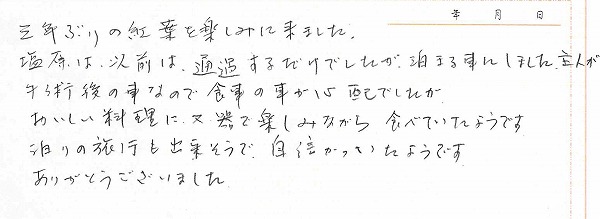 年 月 日
三年ぶりの紅葉を楽しみに来ました。
塩原は、以前は、通過するだけでしたが、泊まる事にしました。主人が
手術後の事なので食事の事が心配でしたが
おいしい料理に、又器で楽しみながら 食べていたようです
泊りの旅行も出来そうで、自信がついたようです
ありがとうございました